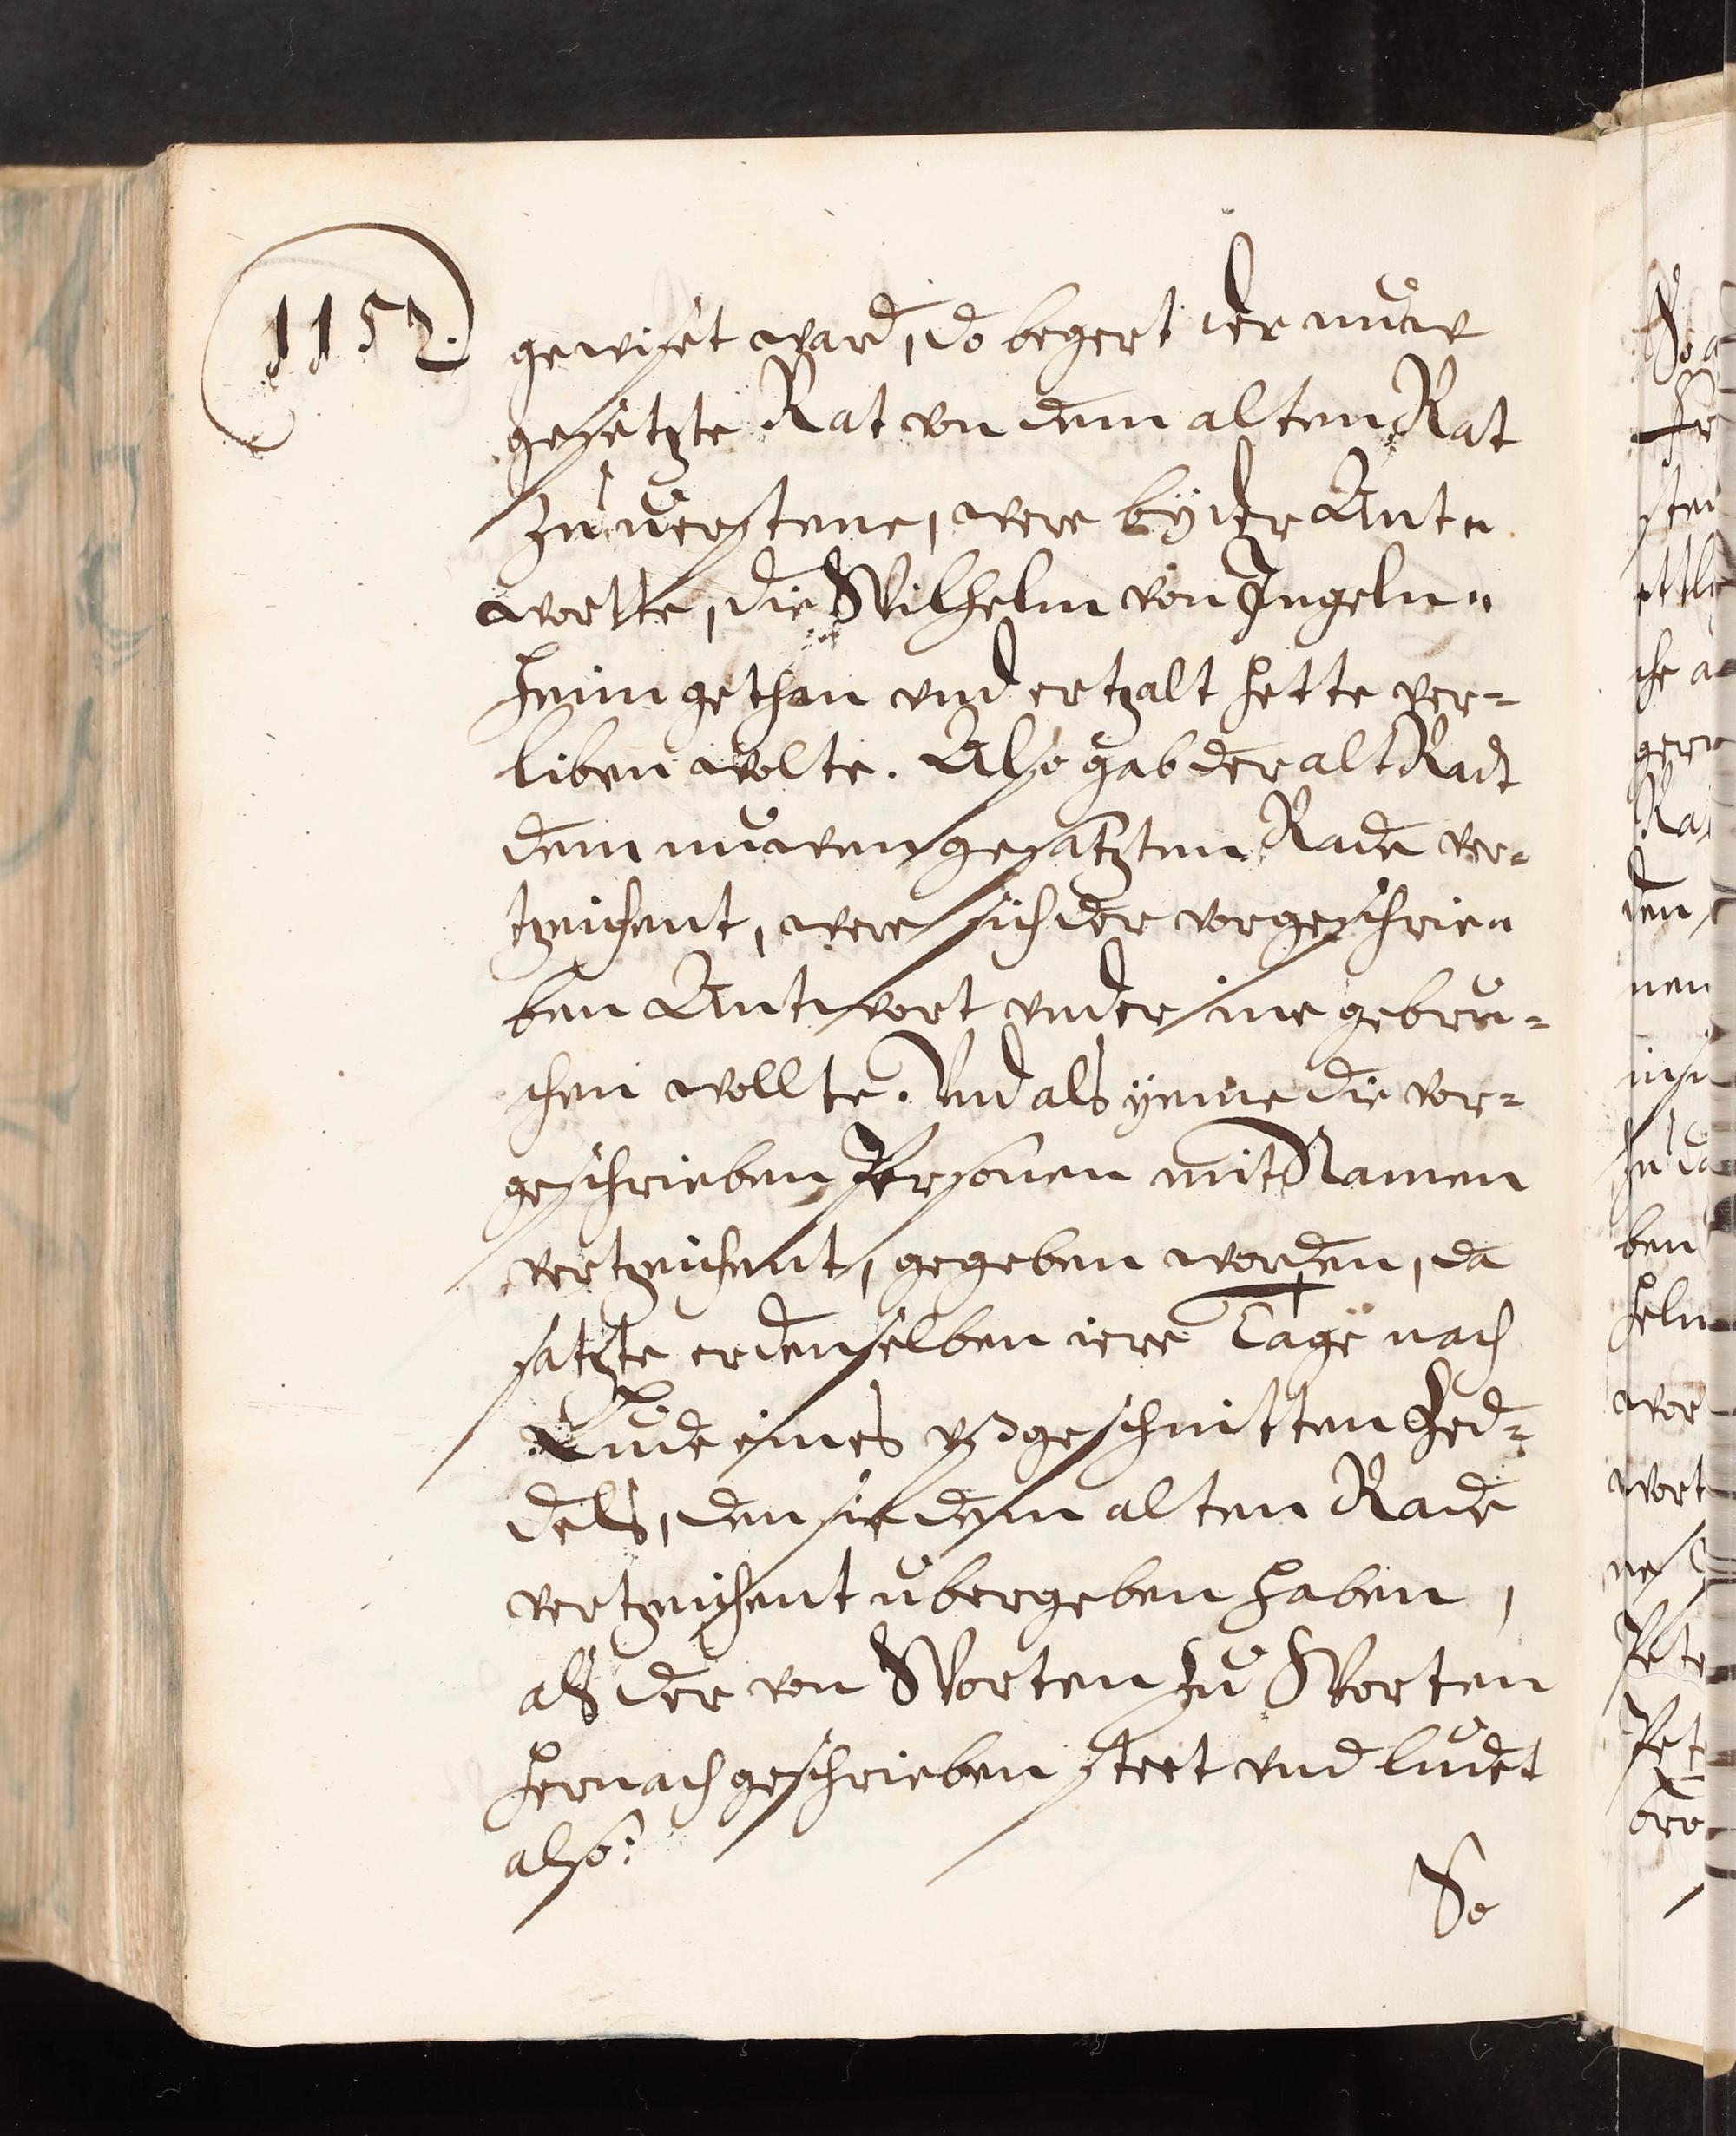 1152.
gewiset ward, do begert der nuwe
gesetzte Rat vn dem alten Rat
zuuerstene, were by der Ant-
wortte, die Wilhelm von Ingeln-
heim gethan vnd ertzalt hette ver-
liben wolte. Also gab der alt Radt
dem nuwen gesatzten Rade ver-
tzeichent, were sich der vorgeschrie-
ben Antwort vnder ine gebru-
chen wollte. Vnd als yeme die vor-
geschrieben Personen mit Namen
vertzeichent, gegeben worden, da
satzte er denselben iere Tage nach
Lude eines vßgeschnitten Zed-
dels, den sie dem alten Rade
vertzeichent übergeben haben,
alß der von Worten zu Worten
hernach geschrieben steet vnd ludet
also:
So